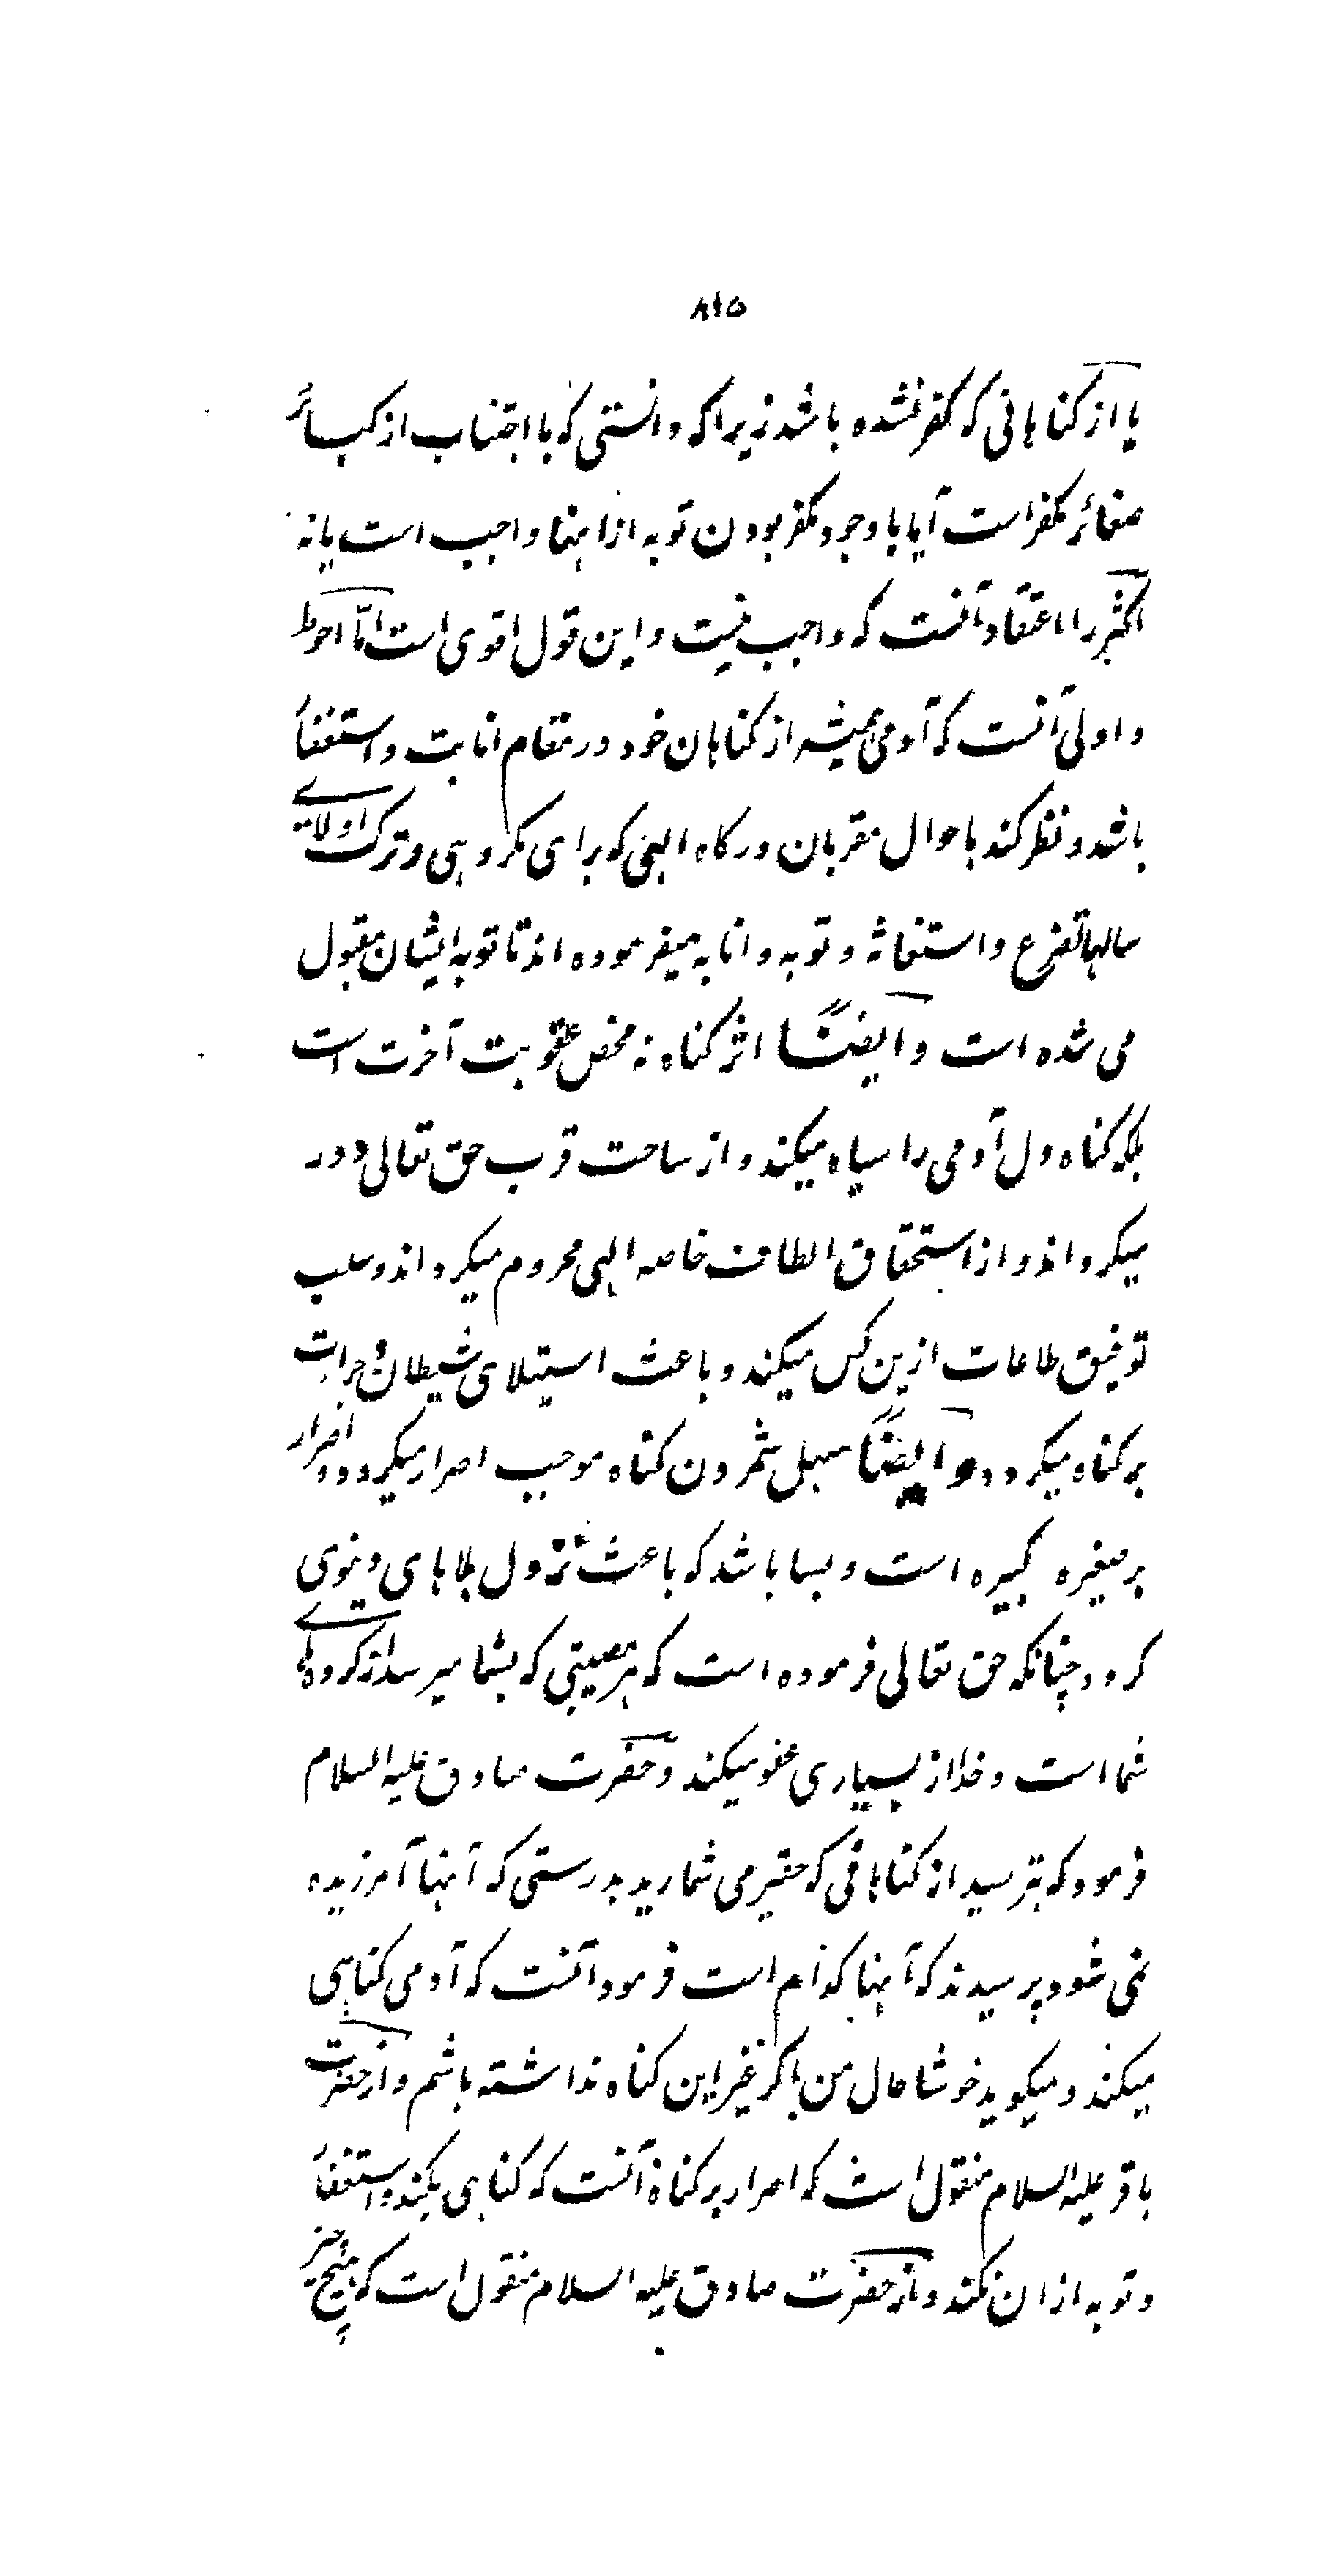 ۸۱۵
یا از کناهانی که مکفر نشده باشد زیرا که دانستی که با اجتناب از کبائر
صغائر مکفر است آیا با وجود مکفر بودن توبه از اینها واجب است یا نه
اکثر را اعتقاد آنست که واجب نیست و این قول اقوی است امّا احوط
و اولی آنست که آدمی همیشه از کناهان خود در مقام انابت و استغفار
باشد و نظر کند باحوال مقربان درکاه الهی که برای مکروهی و ترک اولایے
سالها تضرع و استغاثه و توبه و انابه میفرموده اند تا توبه ایشان مقبول
می شده است و ایضًا اثر کناه نه محض عقوبت آخرت است
بلکه کناه دل آدمی را سیاه میکند و از ساحت قرب حق تعالی دور
میکرداند و از استحقاق الطاف خاصه الهی محروم میکرداند و سلب
توفیق طاعات ازین کس میکند و باعث استیلای شیطان و جرات
بر کناه میکردد و ایضًا سهل شمردن کناه موجب اصرار میکردد و اضرار
بر صغیره کبیره است و بسا باشد که باعث نزول بلاهای دینوی
کردد چنانکه حق تعالی فرموده است که هر مصیبتی که بشما میرسد از کردهاے
شما است و خدا از بسیاری عفو میکند و حضرت صادق علیه السلام
فرمود که بترسید از کناهانی که حقیر می شمارید بدرستی که آنها آمرزیده
نمی شود پرسیدند که آنها کدام است فرمود آنست که آدمی کناهی
میکند و میکوید خوشا حال من اکر غیر این کناه نداشته باشم و از حضرت
باقر علیه السلام منقول است که اصرار بر کناه آنست که کناهی بکند و استغفار
و توبه از ان نکند و از حضرت صادق علیه السلام منقول است که هیچ چیز